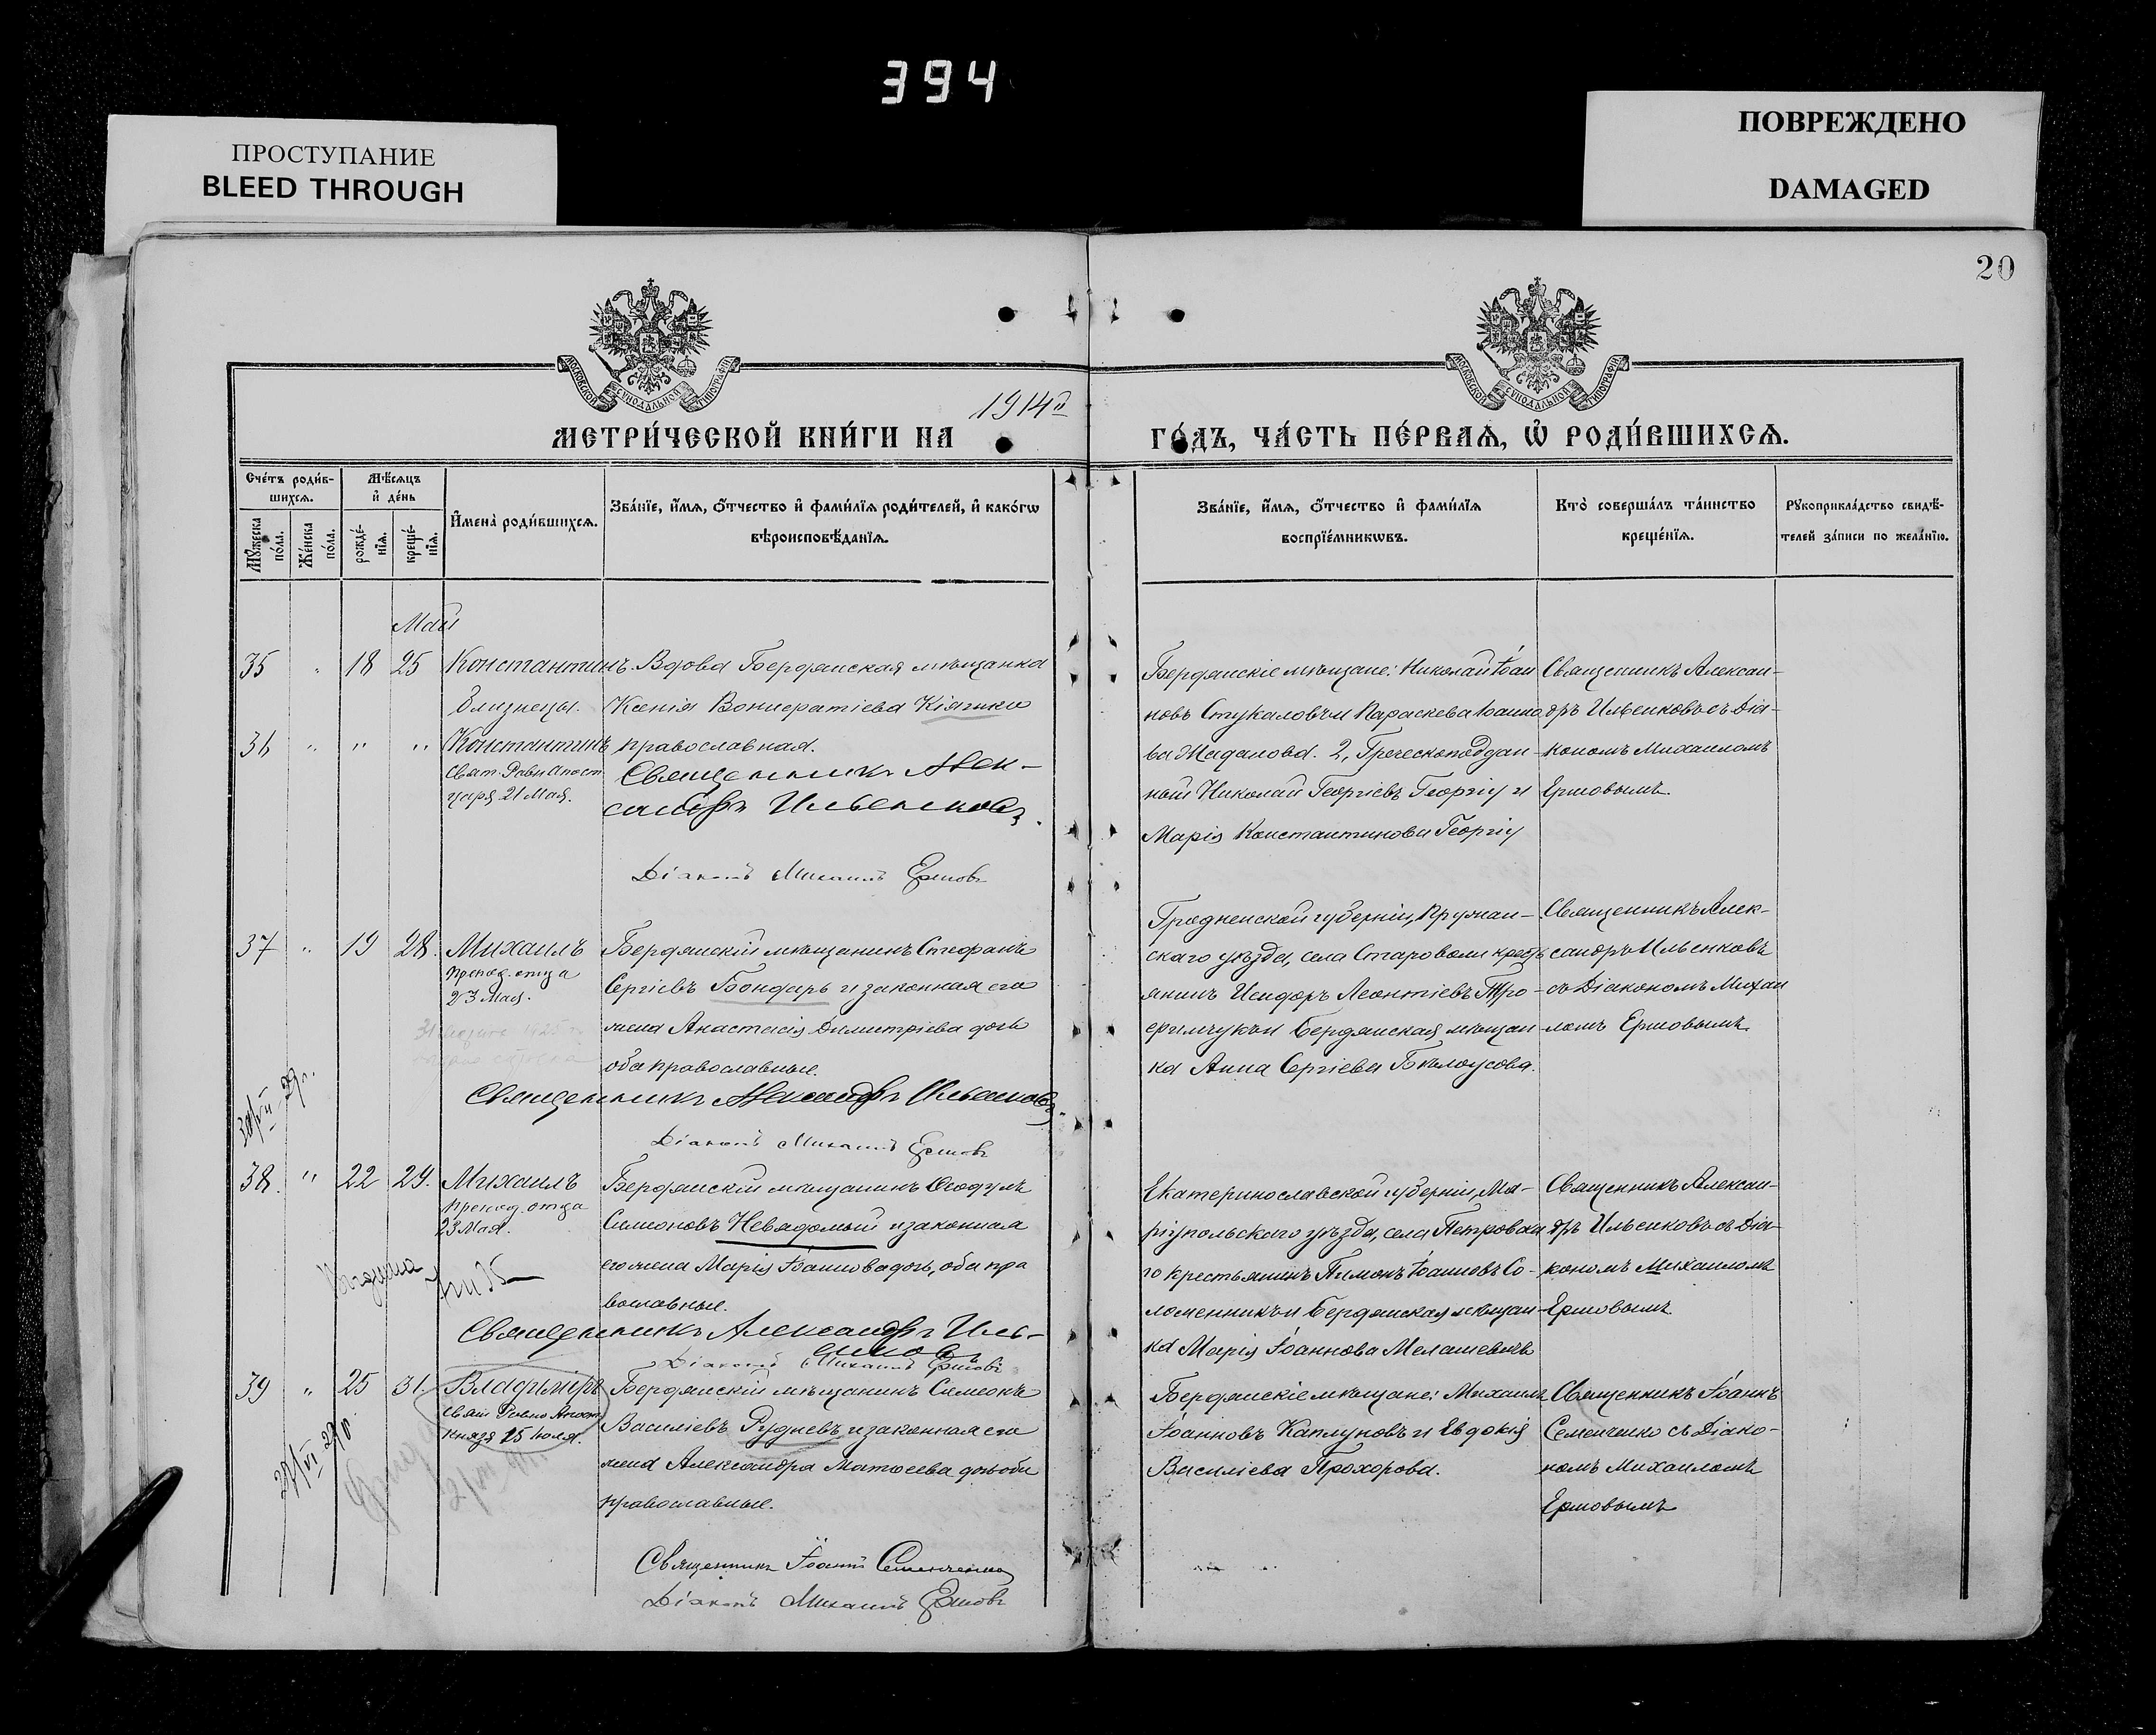 394
ПРОСТУПАНИЕ
BLEED THROUGH
ПОВРЕЖДЕНО
DAMAGED
20
МОСКОВСКОЙ СУНОДАЛЬНОЙ ТИПОГРАФІИ
МОСКОВСКОЙ СУНОДАЛЬНОЙ ТИПОГРАФІИ
1914й
МЕТРИ́ЧЕСКОЙ КНИ́ГИ НА
ГО́ДЪ, ЧА́СТЬ ПЕ́РВАѦ, Ѡ҆ РОДИ́ВШИХСѦ.
Сче́тъ роди́в-
шихсѧ.
Мꙋ́жеска по́ла.
Же́нска по́ла.
Мѣ́сѧцъ
и҆ де́нь
рожде́-
нїѧ.
креще́-
нїѧ.
И҆мена̀ роди́вшихсѧ.
Зва́нїе, и҆́мѧ, ѻ҆́тчество и҆ фами́лїѧ роди́телей, и҆ како́гѡ
вѣроисповѣ́данїѧ.
Зва́нїе, и҆́мѧ, ѻ҆́тчество и҆ фами́лїѧ
воспрїе́мникѡвъ.
Кто̀ соверша́лъ та́инство
креще́нїѧ.
Рꙋкоприкла́дство свидѣ́-
телей за́писи по жела́нїю.
Май
35 " 18 25 Константинъ.
близнецы.
36 " " " Константинъ
Свят. Равн Апост.
царя 21 Мая.
Вдова Бердянская мѣщанка
Ксенія Вонифатіева Кіяшко
православная.
Священникъ Алек-
сандръ Ильенковъ.
Діаконъ Михаилъ Ершовъ
Бердянскіе мѣщане: Николай Іоан
новъ Стукаловъ и Параскева Іоанно
ва Жаданова. 2, Греческоподдан-
ный Николай Георгіевъ Георгіу и
Марія Константинова Георгіу
Священникъ Алексан-
дръ Ильенковъ съ Діа-
кономъ Михаиломъ
Ершовымъ.
37 " 19 28. Михаилъ
Препод. отца
23 Мая.
Бердянскій мѣщанинъ Стефанъ
Сергіевъ Бондарь и законная его
жена Анастасія Димитріева дочь
оба православные.
Священникъ Александръ Ильенковъ.
Діаконъ Михаилъ Ершовъ
Гродненской губерніи, Пружан-
скаго уѣзда, села Староволи кресть
янинъ Исидоръ Леонтіевъ Тро-
фимчукъ и Бердянская мѣщан-
ка Анна Сергіева Бѣлоусова.
Священникъ Алек-
сандръ Ильенковъ
съ Діакономъ Михаи
ломъ Ершовымъ.
38. " 22 29. Михаилъ
Препод. отца
23 Мая.
Бердянскій мѣщанинъ Ѳеодулъ
Симоновъ Невядомый и законная
его жена Марія Іоаннова дочь, оба пра
вославные.
Священникъ Александръ Иль-
енковъ
Діаконъ Михаилъ Ершовъ
Екатеринославской губерніи, Ма-
ріупольскаго уѣзда, села Петровска
го крестьянинъ Пимонъ Іоанновъ Со-
ломенникъ и Бердянская мѣщан-
ка Марія Іоаннова Мелашевичъ
Священникъ Алексан-
дръ Ильенковъ съ Діа-
кономъ Михаиломъ
Ершовымъ
39 " 25 31. Владиміръ
Свят Равно Апост
князя 15 Іюля.
Бердянскій мѣщанинъ Симеонъ
Василіевъ Рудневъ и законная его
жена Александра Матѳеева дочь оба
православные.
Священникъ Іоаннъ Семенченко
Діаконъ Михаилъ Ершовъ
Бердянскіе мѣщане: Михаилъ
Іоанновъ Каплуновъ и Евдокія
Василіева Прохорова.
Священникъ Іоаннъ
Семенченко съ Діако-
номъ Михаиломъ
Ершовымъ